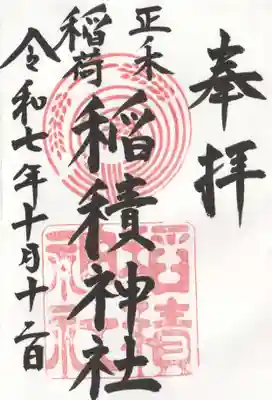 奉拝
正ノ木
稲荷
稲積神社
令和七年十月十二日